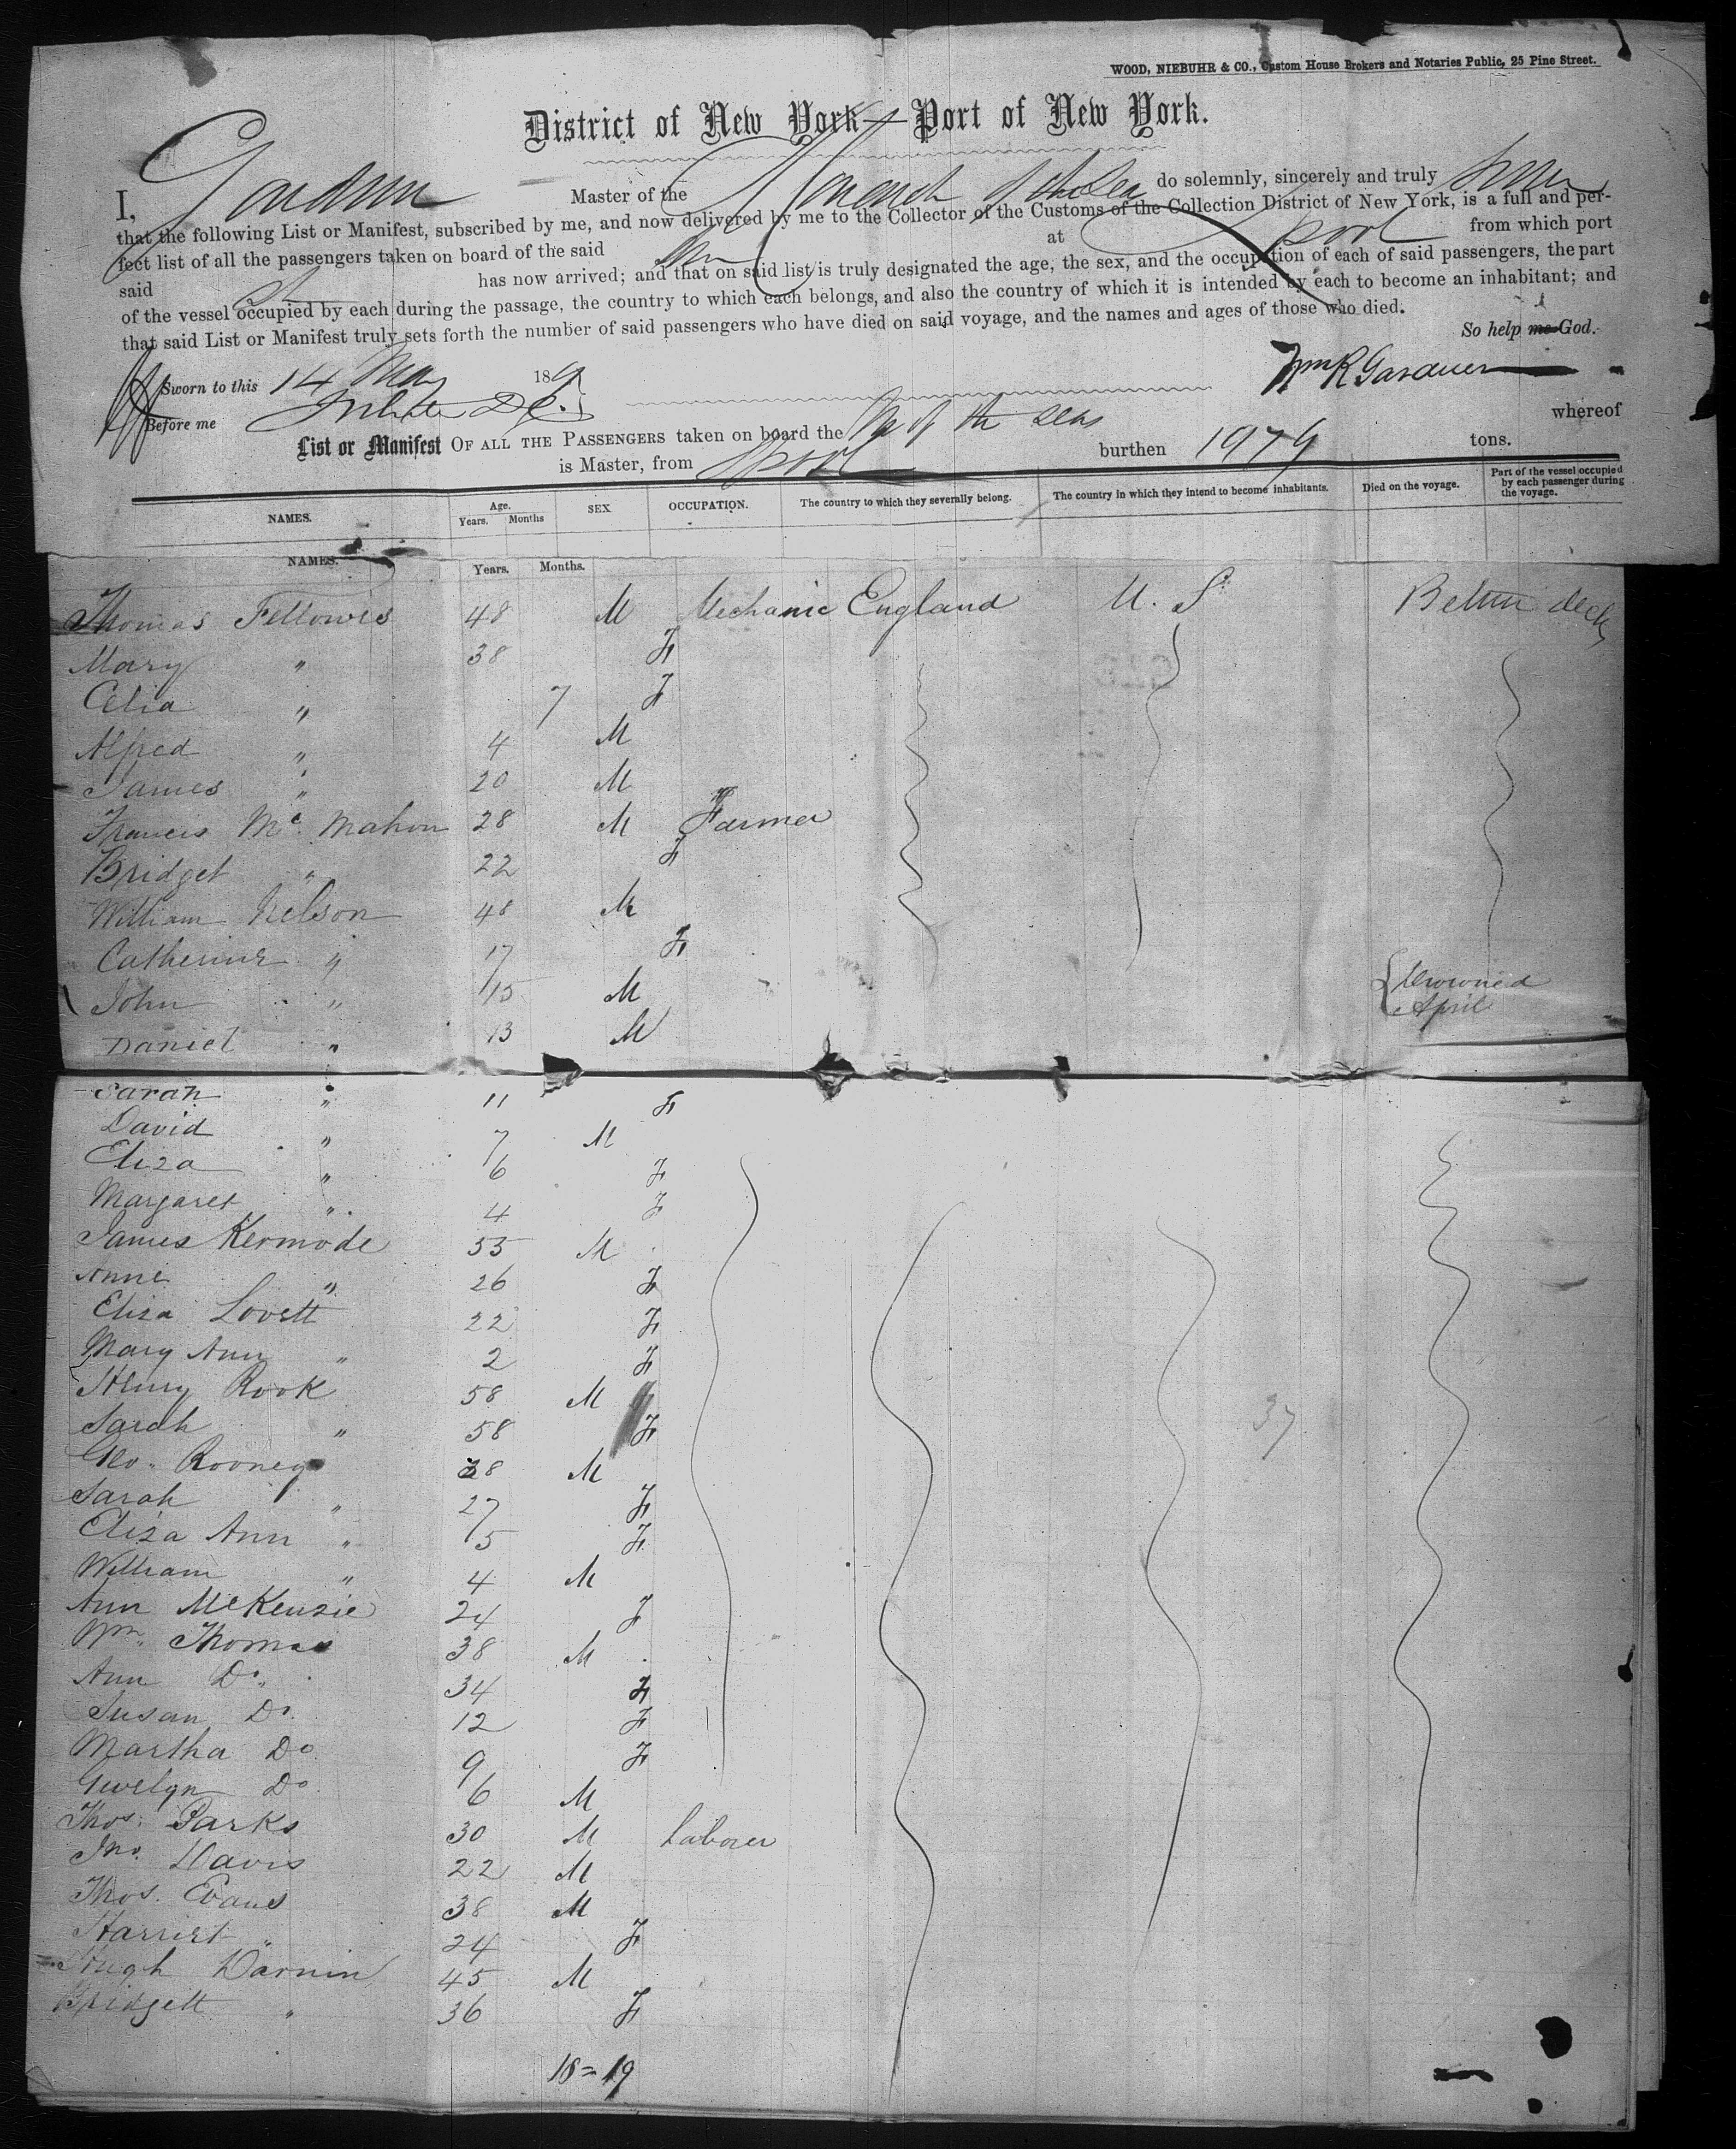 WOOD, NIEBUHR & CO., Custom House Brokers and Notaries Public, 25 Pine Street.
District of New York—Port of New York.
I, Gardner Master of the Monarch of the Sea do solemnly, sincerely and truly swear
that the following List or Manifest, subscribed by me, and now delivered by me to the Collector of the Customs of the Collection District of New York, is a full and per-
fect list of all the passengers taken on board of the said at Lpool from which port
said has now arrived; and that on said list is truly designated the age, the sex, and the occupation of each of said passengers, the part
of the vessel occupied by each during the passage, the country to which each belongs, and also the country of which it is intended by each to become an inhabitant; and
that said List or Manifest truly sets forth the number of said passengers who have died on said voyage, and the names and ages of those who died.
So help me God.
Sworn to this 14 May 186 Wm R Gardner
Before me
List or Manifest OF ALL THE PASSENGERS taken on board the M of the Seas whereof
is Master, from Lpool burthen 1979 tons.
NAMES. Age. Years. Months SEX. OCCUPATION. The country to which they severally belong. The country in which they intend to become inhabitants. Died on the voyage. Part of the vessel occupied by each passenger during the voyage.
NAMES. Years. Months.
Thomas Fellowes 48 M Mechanic England U. S. Betwn deck
Mary " 38 F
Celia " 7 F
Alfred " 4 M
James " 20 M
Francis Mc. Mahon 28 M Farmer
Bridget " 22 F
William Nelson 48 M
Catherine " 17 F
John " 15 M Drowned April
Daniel " 13 M
Sarah " 11 F
David " 7 M
Eliza " 6 F
Margaret " 4 F
James Kermode 55 M
Anne " 26 F
Eliza Lovett 22 F
Mary Ann " 2 F
Henry Rook 58 M
Sarah " 58 F
Geo. Rooney 38 M
Sarah " 27 F
Eliza Ann " 5 F
William " 4 M
Ann McKenzie 24 F
Wm. Thomas 38 M
Ann Do. 34 F
Susan Do. 12 F
Martha Do 9 F
Gwelyn Do 6 M
Thos. Parks 30 M Laborer
Jno. Davis 22 M
Thos. Evans 38 M
Harriet " 24 F
Hugh Darnin 45 M
Bridgett " 36 F
37
18=19